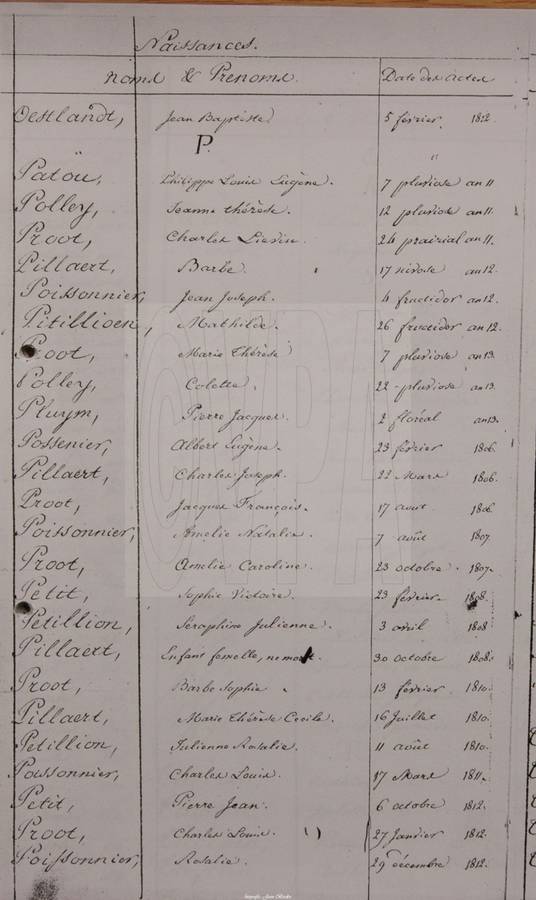 Naissances.
noms & Prenoms. Date des actes
Oestlandt, Jean Baptiste 5 février 1812
P.
Patou, Philippe Louis Eugène. 7 pluviose an 11
Polley, Jeanne thérèse. 12 pluviose an 11.
Proot, Charles Lievin. 24 prairial an 11.
Pillaert, Barbe 17 nivose an 12.
Poissonnier, Jean Joseph. 4 fructidor an 12.
Pitillioen, Mathilde. 26 fructidor an 12.
Proot, Marie Thérèse 7 pluviose an 13.
Polley, Colette. 22 pluviose an 13.
Pluym, Pierre Jacques. 2 floréal an 13.
Possenier, Albert Eugène. 23 février 1806.
Pillaert, Charles Joseph. 22 Mars 1806.
Proot, Jacques François. 17 aout 1806
Poissonnier, Amelie Natalie. 7 août 1807
Proot, Amelie Caroline. 23 octobre. 1807.
Petit, Sophie Victoire. 23 février. 1808.
Petillion, Seraphine Julienne. 3 avril 1808
Pillaert, Enfant femelle, né mort. 30 octobre 1808.
Proot, Barbe Sophie 13 février 1810.
Pillaert, Marie Thérèse Cecile. 16 Juillet 1810.
Petillion, Julienne Rosalie. 11 août 1810.
Poissonnier, Charles Louis. 17 Mars 1811.
Petit, Pierre Jean. 6 octobre 1812.
Proot, Charles Louis. 27 Janvier 1812.
Poissonnier, Rosalie. 29 décembre 1812.